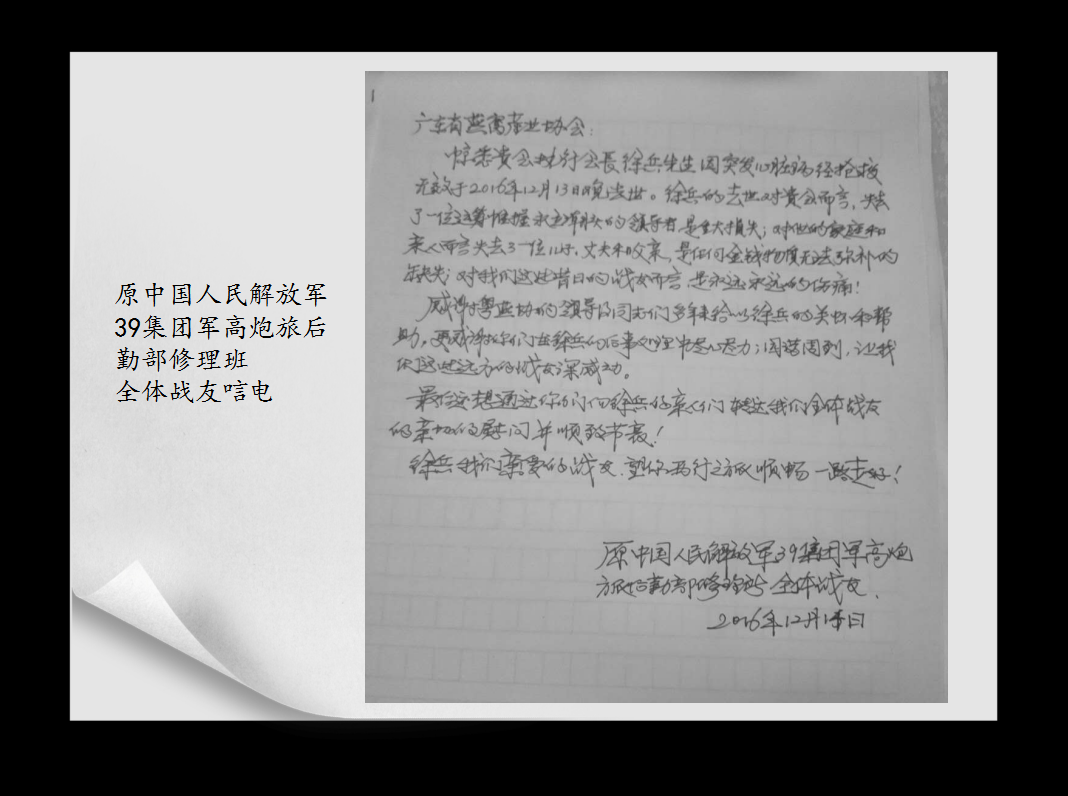 原中国人民解放军
39集团军高炮旅后
勤部修理班
全体战友唁电
广东省燕窝产业协会:
惊悉贵会执行会长徐兵先生因突发心脏病经抢救
无效于2016年12月13日晚去世。徐兵的去世对贵会而言,失去
了一位运筹帷幄的领导者,是重大损失;对他的家庭和
亲人而言失去了一位儿子、丈夫和父亲,是任何金钱物质无法弥补的
缺失;对我们这些昔日的战友而言,是永远永远的伤痛!
感谢粤燕协的领导同志们多年来给以徐兵的关怀和帮
助,更感谢你们在徐兵的后事处理中尽心尽力;周诺周到,让我
们这些远方的战友深感动。
最后还想通过你们向徐兵的亲人们转达我们全体战友
的亲切的慰问并顺致节哀!
徐兵我们亲爱的战友,望你西行之旅顺畅一路走好!
原中国人民解放军39集团军高炮
旅后勤部修理班全体战友.
2016年12月 日